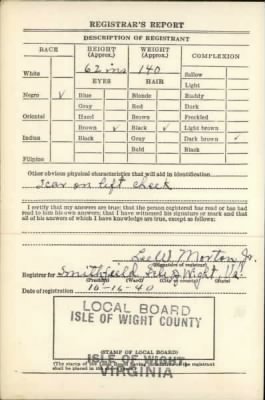 REGISTRAR'S REPORT
DESCRIPTION OF REGISTRANT
RACE HEIGHT (Approx.) WEIGHT (Approx.) COMPLEXION
62 ins 140
White Sallow
EYES HAIR Light
Negro ✓ Blue Blonde Ruddy
Gray Red Dark
Oriental Hazel Brown Freckled
Brown ✓ Black ✓ Light brown
Indian Black Gray Dark brown ✓
Bald Black
Filipino
Other obvious physical characteristics that will aid in identification
Scar on left cheek
I certify that my answers are true; that the person registered has read or has had read to him his own answers; that I have witnessed his signature or mark and that all of his answers of which I have knowledge are true, except as follows:
Lee W. Morton Jr.
(Signature of registrar)
Registrar for Smithfield Isle of Wight, Va.
(Precinct) (Ward) (City or county) (State)
Date of registration 10-16-40
LOCAL BOARD
ISLE OF WIGHT COUNTY
ISLE OF WIGHT
(STAMP OF LOCAL BOARD)
VIRGINIA